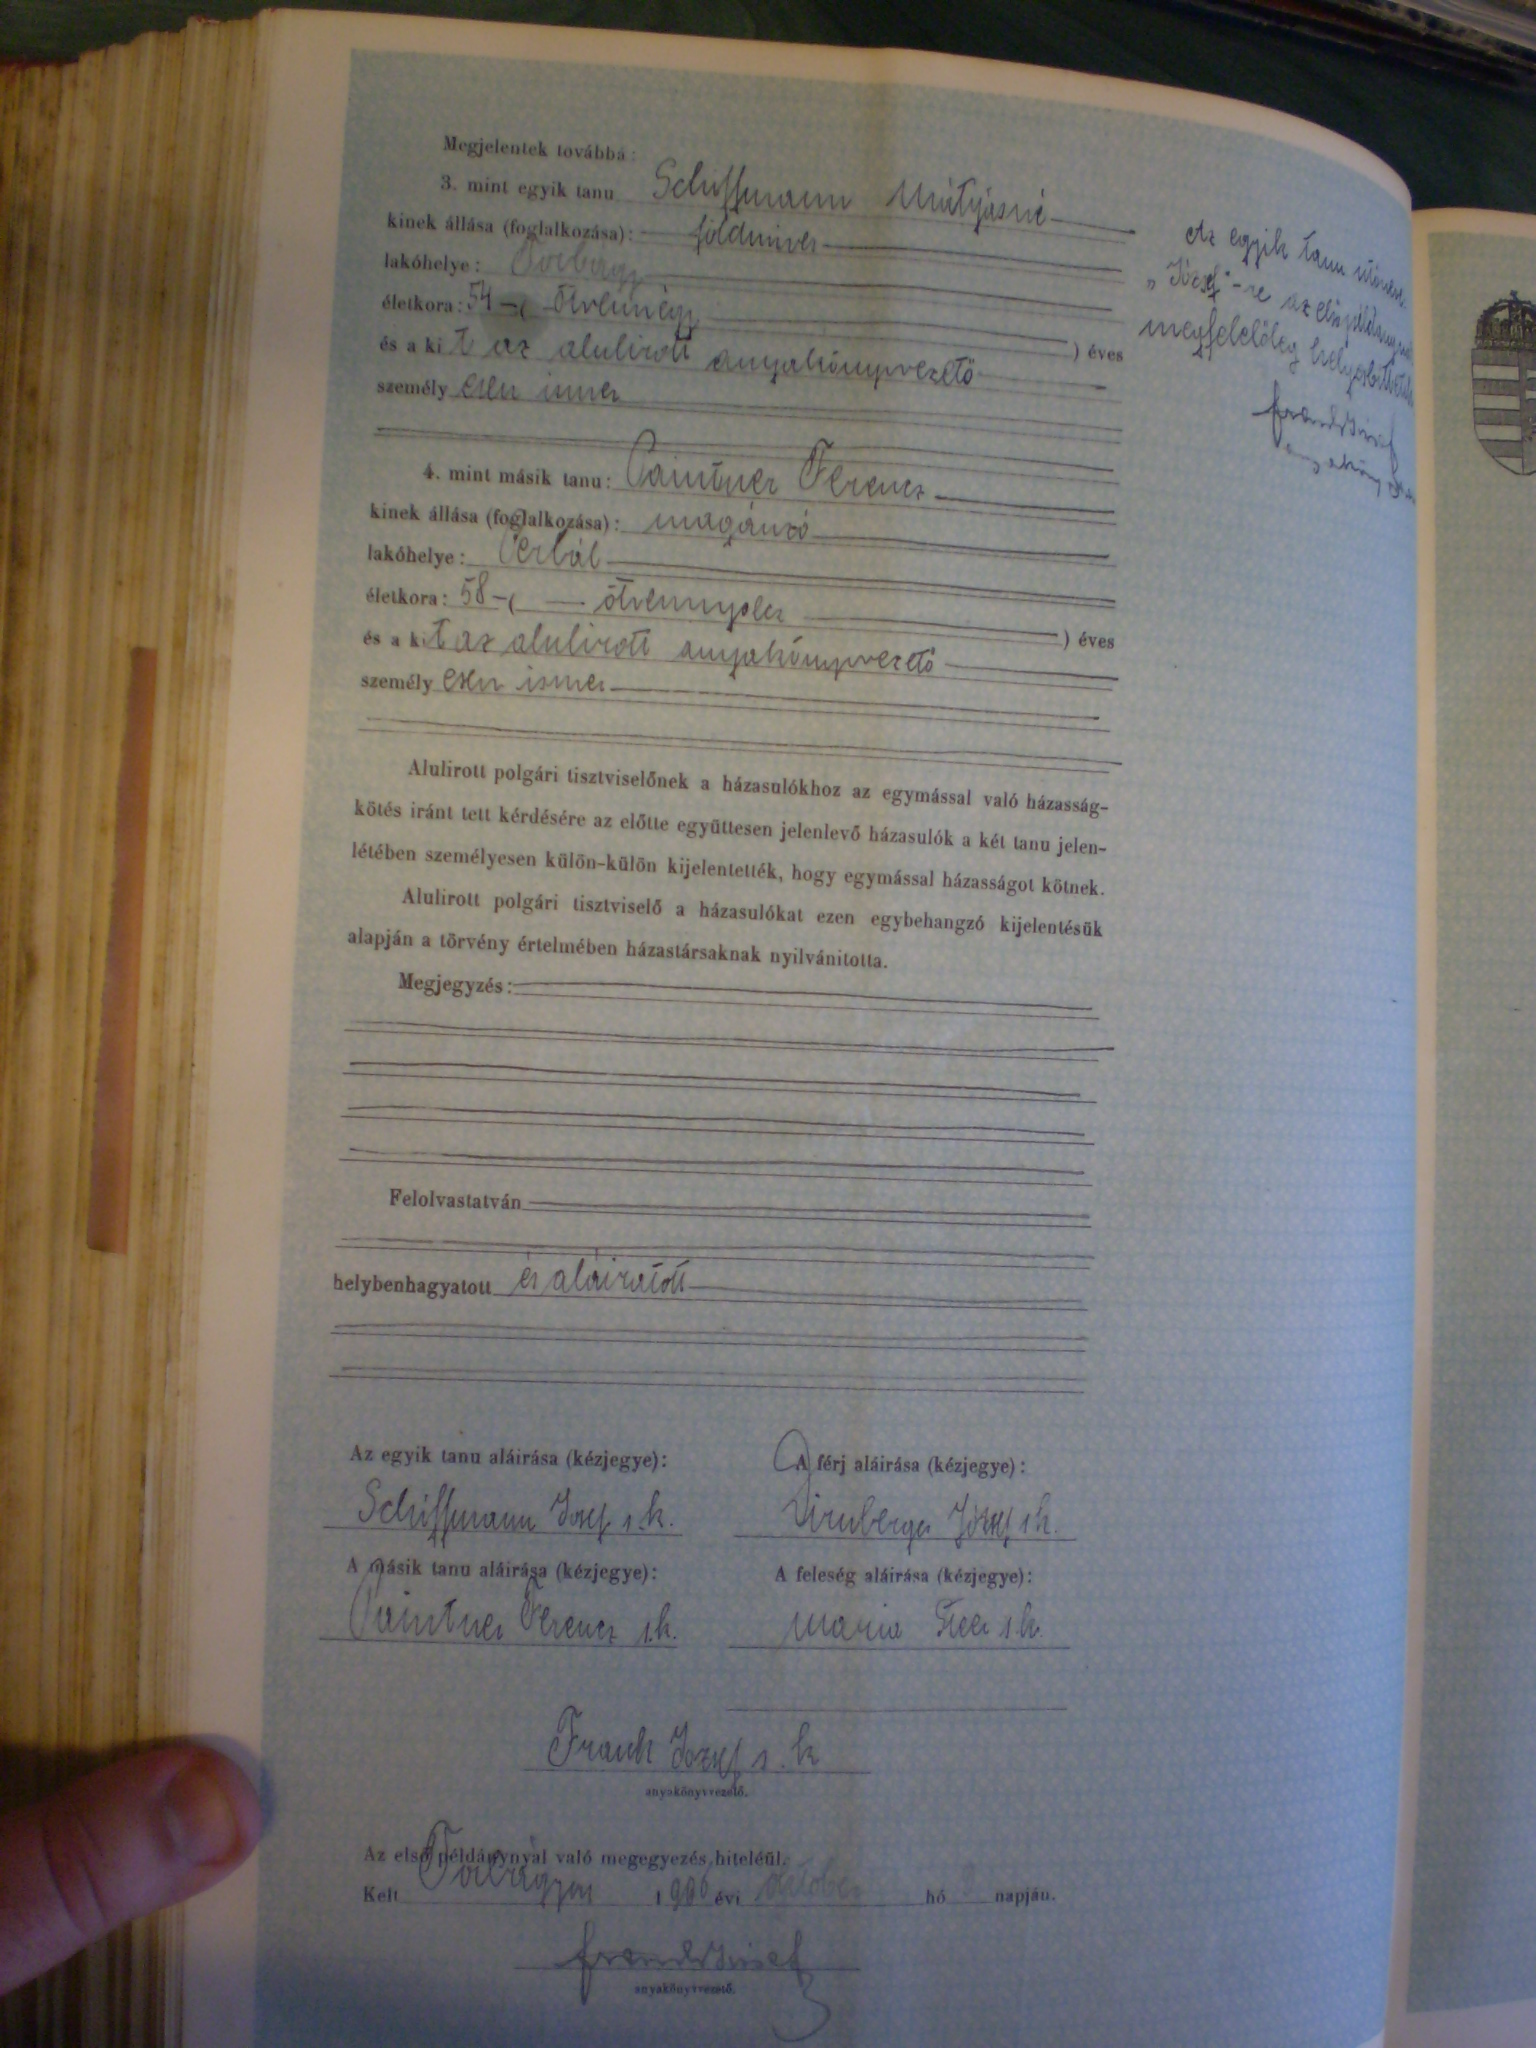 Megjelentek továbbá:
3. mint egyik tanu Schiffmann Mátyásné
kinek állása (foglalkozása): földmives
lakóhelye: Torbágy
életkora: 54 ( ötvennégy ) éves
és a ki t az alulirott anyakönyvvezető
személy esen ismer
4. mint másik tanu: Paintner Ferencz
kinek állása (foglalkozása): magánzó
lakóhelye: Perbál
életkora: 58 ( ötvennyolcz ) éves
és a ki t az alulirott anyakönyvvezető
személy esen ismer
Alulirott polgári tisztviselőnek a házasulókhoz az egymással való házasság-
kötés iránt tett kérdésére az előtte együttesen jelenlevő házasulók a két tanu jelen-
létében személyesen külön-külön kijelentették, hogy egymással házasságot kötnek.
Alulirott polgári tisztviselő a házasulókat ezen egybehangzó kijelentésük
alapján a törvény értelmében házastársaknak nyilvánitotta.
Megjegyzés:
Felolvastatván
helybenhagyatott és aláiratott
Az egyik tanu aláirása (kézjegye):
Schiffmann József s.k.
A férj aláirása (kézjegye):
József s.k.
A másik tanu aláirása (kézjegye):
Paintner Ferencz s.k.
A feleség aláirása (kézjegye):
Maria s.k.
Frank József s.k
anyakönyvvezető.
Az első példánynyal való megegyezés hiteléül.
Kelt Torbágyon 1906 évi október hó napján.
Frank József
anyakönyvvezető.
Az egyik tanu
„József"-re az első
megfelelőleg
Frank József